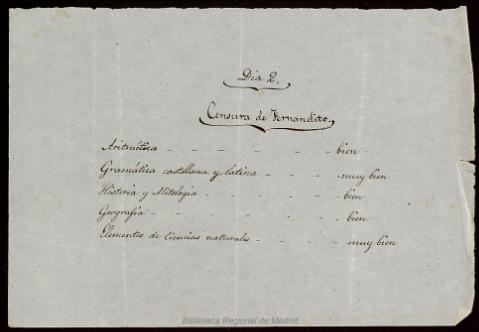 Dia 2.
Censura de Fernandito.
Aritmética - - - - - - - bien.
Gramática castellana y latina - - - - muy bien
Historia y Mitologia - - - - - bien
Geografía - - - - - - - bien
Elementos de Ciencias naturales - - - - muy bien
Biblioteca Regional de Madrid